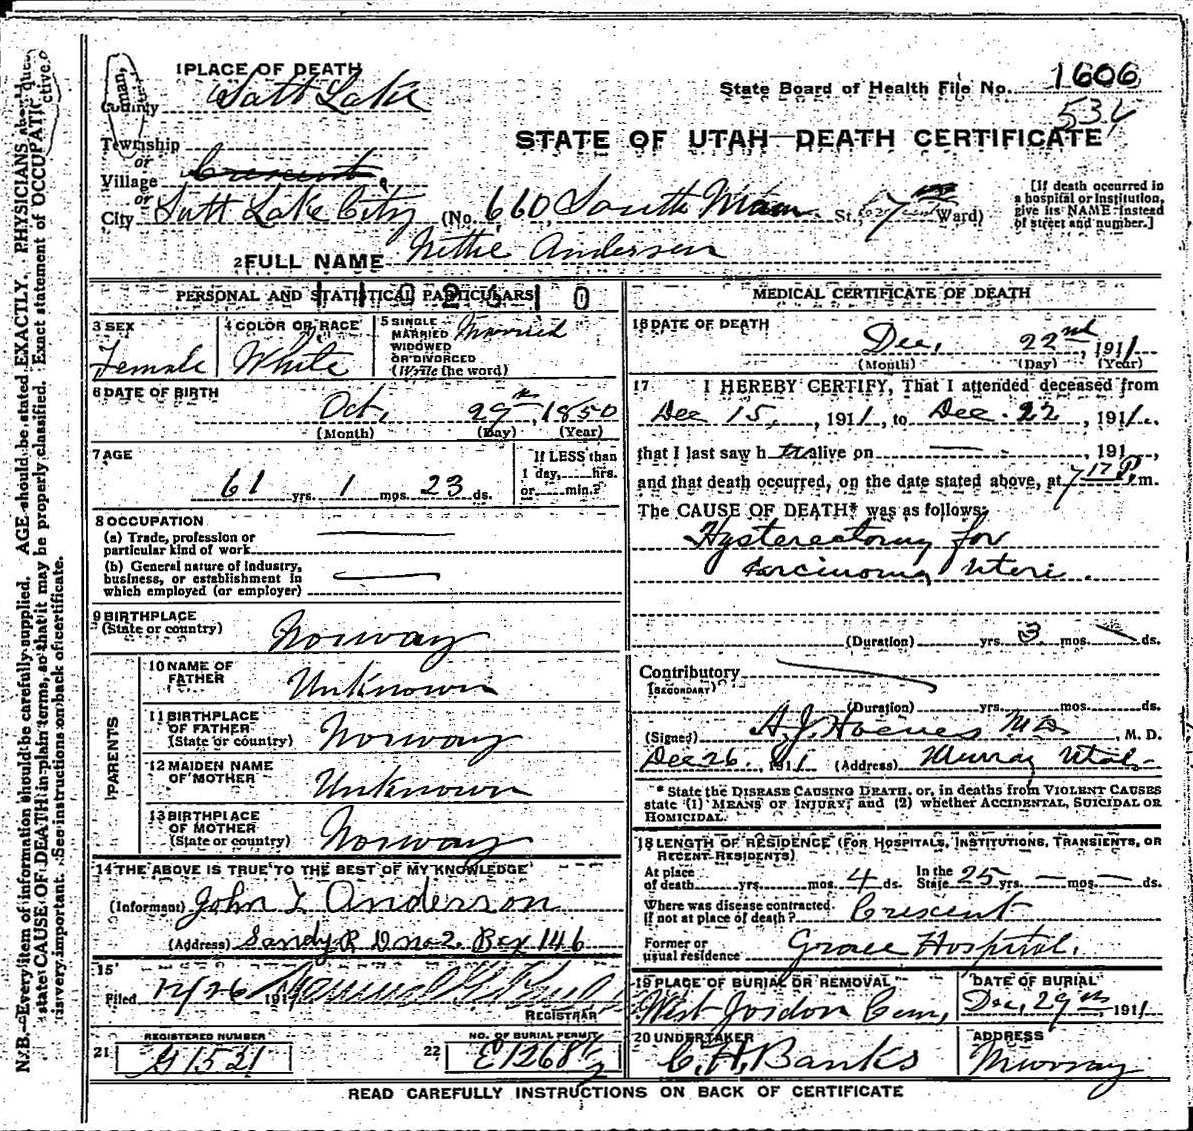 1 PLACE OF DEATH
County Salt Lake
State Board of Health File No. 1606
534
STATE OF UTAH—DEATH CERTIFICATE
Township
or
Village Crescent
or
City Salt Lake City (No. 660 South Main St.; 7 Ward)
[If death occurred in
a hospital or institution,
give its NAME instead
of street and number.]
2 FULL NAME Nettie Andersen
PERSONAL AND STATISTICAL PARTICULARS
3 SEX
Female
4 COLOR OR RACE
White
5 SINGLE
MARRIED
WIDOWED
OR DIVORCED
(Write the word)
Married
6 DATE OF BIRTH
Oct. 29th, 1850
(Month) (Day) (Year)
7 AGE
61 yrs. 1 mos. 23 ds.
If LESS than
1 day, hrs.
or min.?
8 OCCUPATION
(a) Trade, profession or
particular kind of work
(b) General nature of industry,
business, or establishment in
which employed (or employer)
9 BIRTHPLACE
(State or country)
Norway
PARENTS
10 NAME OF
FATHER
Unknown
11 BIRTHPLACE
OF FATHER
(State or country)
Norway
12 MAIDEN NAME
OF MOTHER
Unknown
13 BIRTHPLACE
OF MOTHER
(State or country)
Norway
14 THE ABOVE IS TRUE TO THE BEST OF MY KNOWLEDGE
(Informant) John L Anderson
(Address) Sandy R D no 2. Box 146
15
Filed 12/26 191
REGISTRAR
21 REGISTERED NUMBER
G1531
22 NO. OF BURIAL PERMIT
MEDICAL CERTIFICATE OF DEATH
16 DATE OF DEATH
Dec. 22nd, 1911
(Month) (Day) (Year)
17 I HEREBY CERTIFY, That I attended deceased from
Dec 15, 1911, to Dec. 22, 1911.
that I last saw h alive on — 191 ,
and that death occurred, on the date stated above, at 7 17 P. m.
The CAUSE OF DEATH* was as follows:
Hysterectomy for
Carcinoma Uteri
(Duration) yrs. 3 mos. ds.
Contributory
(SECONDARY)
(Duration) yrs. mos. ds.
(Signed) M D , M. D.
Dec 26, 1911 (Address) Murray Utah
* State the DISEASE CAUSING DEATH, or, in deaths from VIOLENT CAUSES
state (1) MEANS OF INJURY; and (2) whether ACCIDENTAL, SUICIDAL OR
HOMICIDAL.
18 LENGTH OF RESIDENCE (FOR HOSPITALS, INSTITUTIONS, TRANSIENTS, OR
RECENT RESIDENTS)
At place
of death yrs. mos. 4 ds.
In the
State 25 yrs. — mos. — ds.
Where was disease contracted
if not at place of death? Crescent
Former or
usual residence Grace Hospital.
19 PLACE OF BURIAL OR REMOVAL
West Jordon Cem,
DATE OF BURIAL
Dec, 29th, 1911
20 UNDERTAKER
C. H. Banks
ADDRESS
Murray
READ CAREFULLY INSTRUCTIONS ON BACK OF CERTIFICATE
N. B.—Every item of information should be carefully supplied. AGE should be stated EXACTLY. PHYSICIANS should
state CAUSE OF DEATH in plain terms, so that it may be properly classified. Exact statement of OCCUPATION
is very important. See instructions on back of certificate.